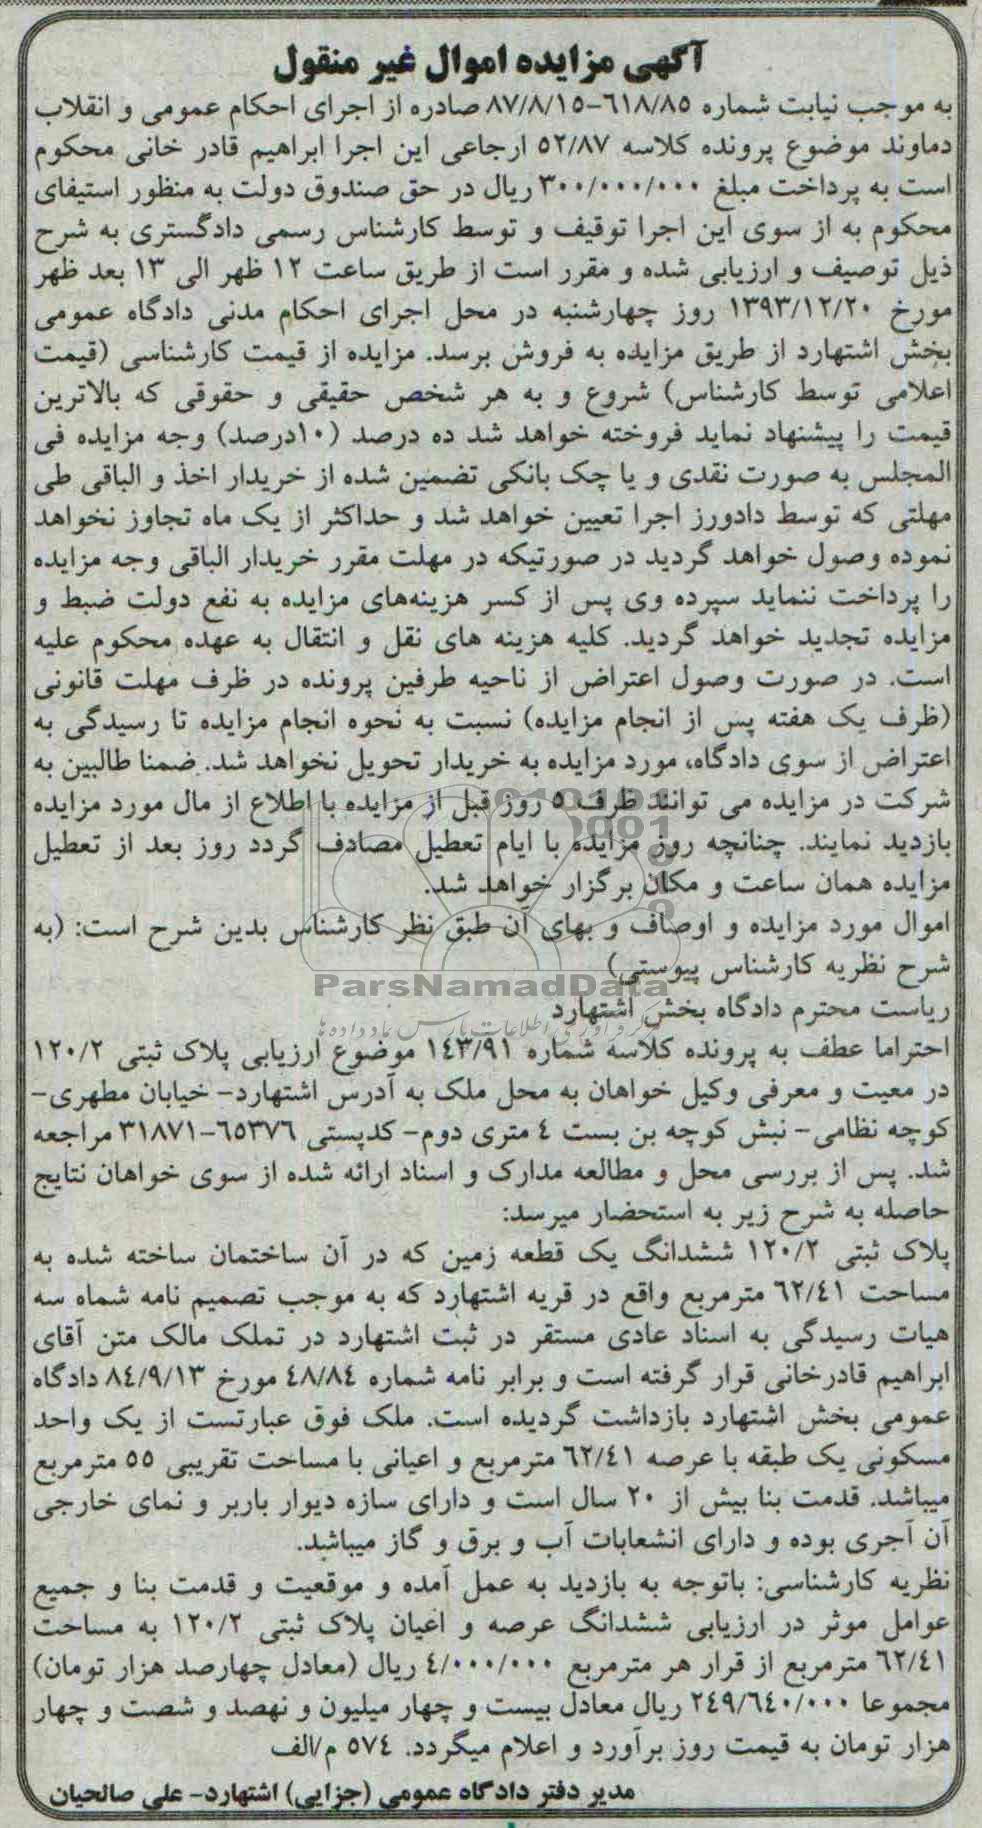 آگهی مزایده اموال غیر منقول
به موجب نیابت شماره ۶۱۸/۸۵-۸۷/۸/۱۵ صادره از اجرای احکام عمومی و انقلاب
دماوند موضوع پرونده کلاسه ۵۲/۸۷ ارجاعی این اجرا ابراهیم قادر خانی محکوم
است به پرداخت مبلغ ۳۰۰/۰۰۰/۰۰۰ ریال در حق صندوق دولت به منظور استیفای
محکوم به از سوی این اجرا توقیف و توسط کارشناس رسمی دادگستری به شرح
ذیل توصیف و ارزیابی شده و مقرر است از طریق ساعت ۱۲ ظهر الی ۱۳ بعد ظهر
مورخ ۱۳۹۳/۱۲/۲۰ روز چهارشنبه در محل اجرای احکام مدنی دادگاه عمومی
بخش اشتهارد از طریق مزایده به فروش برسد. مزایده از قیمت کارشناسی (قیمت
اعلامی توسط کارشناس) شروع و به هر شخص حقیقی و حقوقی که بالاترین
قیمت را پیشنهاد نماید فروخته خواهد شد ده درصد (۱۰درصد) وجه مزایده فی
المجلس به صورت نقدی و یا چک بانکی تضمین شده از خریدار اخذ و الباقی طی
مهلتی که توسط دادورز اجرا تعیین خواهد شد و حداکثر از یک ماه تجاوز نخواهد
نموده وصول خواهد گردید در صورتیکه در مهلت مقرر خریدار الباقی وجه مزایده
را پرداخت ننماید سپرده وی پس از کسر هزینه‌های مزایده به نفع دولت ضبط و
مزایده تجدید خواهد گردید. کلیه هزینه های نقل و انتقال به عهده محکوم علیه
است. در صورت وصول اعتراض از ناحیه طرفین پرونده در ظرف مهلت قانونی
(ظرف یک هفته پس از انجام مزایده) نسبت به نحوه انجام مزایده تا رسیدگی به
اعتراض از سوی دادگاه، مورد مزایده به خریدار تحویل نخواهد شد. ضمنا طالبین به
شرکت در مزایده می توانند ظرف ۵ روز قبل از مزایده با اطلاع از مال مورد مزایده
بازدید نمایند. چنانچه روز مزایده با ایام تعطیل مصادف گردد روز بعد از تعطیل
مزایده همان ساعت و مکان برگزار خواهد شد.
اموال مورد مزایده و اوصاف و بهای آن طبق نظر کارشناس بدین شرح است: (به
شرح نظریه کارشناس پیوستی)
ParsNamadData
ریاست محترم دادگاه بخش اشتهارد
احتراما عطف به پرونده کلاسه شماره ۱۴۳/۹۱ موضوع ارزیابی پلاک ثبتی ۱۲۰/۲
در معیت و معرفی وکیل خواهان به محل ملک به آدرس اشتهارد- خیابان مطهری-
کوچه نظامی- نبش کوچه بن بست ۴ متری دوم- کدپستی ۶۵۳۷۶-۳۱۸۷۱ مراجعه
شد. پس از بررسی محل و مطالعه مدارک و اسناد ارائه شده از سوی خواهان نتایج
حاصله به شرح زیر به استحضار میرسد:
پلاک ثبتی ۱۲۰/۲ ششدانگ یک قطعه زمین که در آن ساختمان ساخته شده به
مساحت ۶۲/۴۱ مترمربع واقع در قریه اشتهارد که به موجب تصمیم نامه شماه سه
هیات رسیدگی به اسناد عادی مستقر در ثبت اشتهارد در تملک مالک متن آقای
ابراهیم قادرخانی قرار گرفته است و برابر نامه شماره ۴۸/۸۴ مورخ ۸۴/۹/۱۳ دادگاه
عمومی بخش اشتهارد بازداشت گردیده است. ملک فوق عبارتست از یک واحد
مسکونی یک طبقه با عرصه ۶۲/۴۱ مترمربع و اعیانی با مساحت تقریبی ۵۵ مترمربع
میباشد. قدمت بنا بیش از ۲۰ سال است و دارای سازه دیوار باربر و نمای خارجی
آن آجری بوده و دارای انشعابات آب و برق و گاز میباشد.
نظریه کارشناسی: باتوجه به بازدید به عمل آمده و موقعیت و قدمت بنا و جمیع
عوامل موثر در ارزیابی ششدانگ عرصه و اعیان پلاک ثبتی ۱۲۰/۲ به مساحت
۶۲/۴۱ مترمربع از قرار هر مترمربع ۴/۰۰۰/۰۰۰ ریال (معادل چهارصد هزار تومان)
مجموعا ۲۴۹/۶۴۰/۰۰۰ ریال معادل بیست و چهار میلیون و نهصد و شصت و چهار
هزار تومان به قیمت روز برآورد و اعلام میگردد. ۵۷۴ م/الف
مدیر دفتر دادگاه عمومی (جزایی) اشتهارد- علی صالحیان